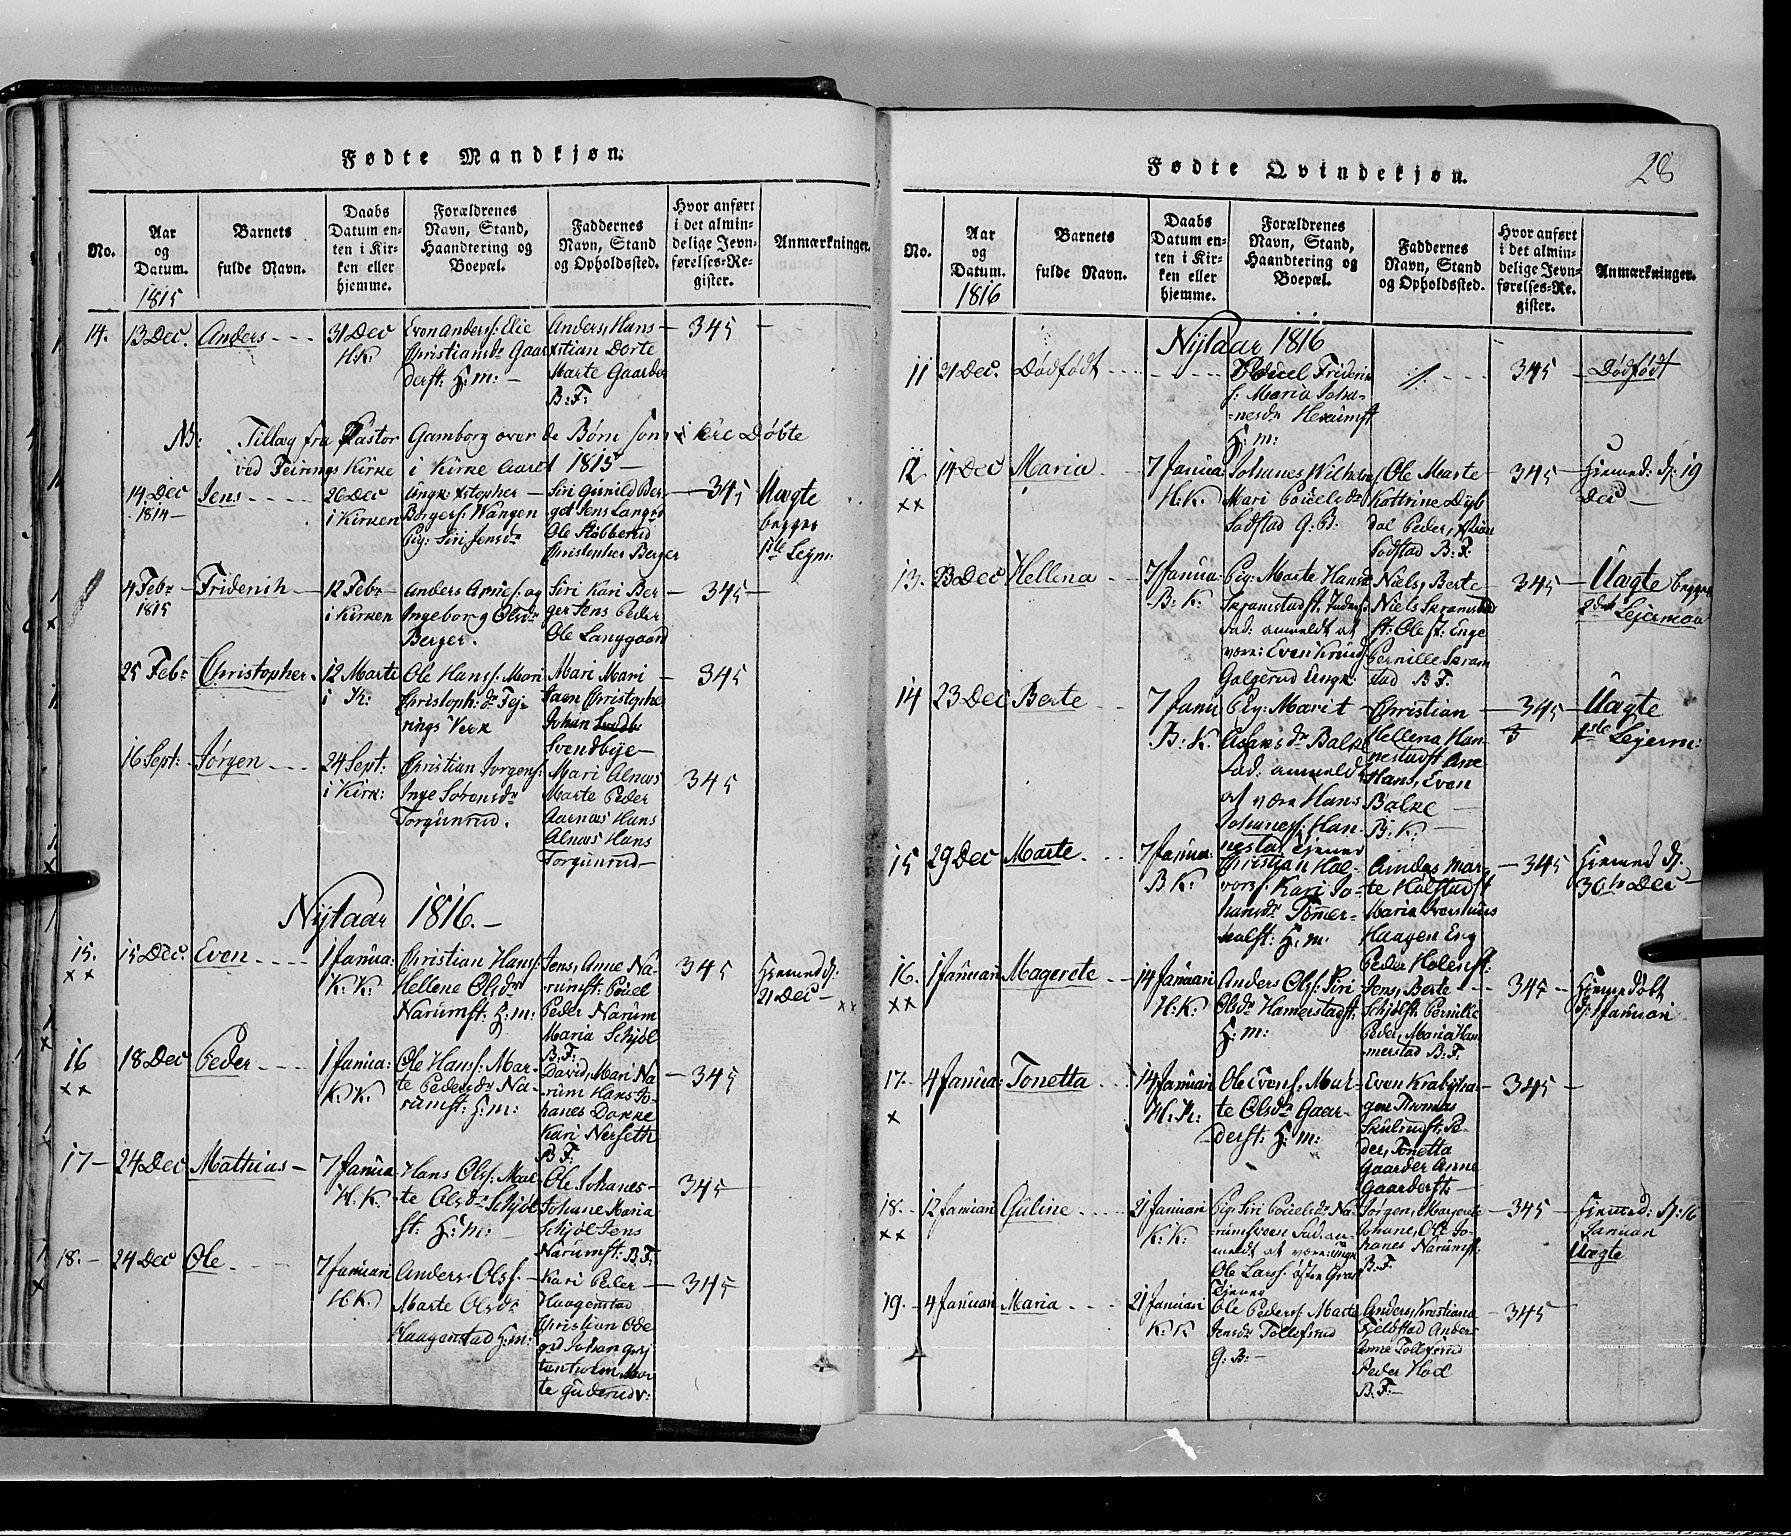 Fødte Mandkjøn.
No.
Aar
og
Datum.
1815
Barnets
fulde Navn.
Daabs
Datum en-
ten i Kir-
ken eller
hjemme.
Forældrenes
Navn, Stand,
Haandtering og
Boepæl.
Faddernes
Navn, Stand
og Opholdssted.
Hvor anført
i det almin-
delige Jevn-
førelses-Re-
gister.
Anmærkninger.
14.
13 Dec.
Anders
31 Dec
H.K.
Even Anders: Elie
Christiansdr Gaar
derst: H: m: —
Anders, Hans
Dorte
Marte Gaarder
B: F:
345
NB: Tillæg fra Pastor Gamborg over de Børn som ere Døbte
ved Feirings Kirke i Kirke Aaret 1815 —
14 Dec
1814 —
Jens
26 Dec
i Kirken
Ungk:
Borgers: Wangen
Pig: Siri Jensdr
Siri Gunild Ber-
get Jens Langrd
Ole Stobberud
Christopher Berger
345
Uægte
begges
1ste Lejm:
4 Febr
1815
Fridenih
12 Febr
i Kirken
Anders Arnes: og
Ingeborg Olsdr
Berger.
Siri Kari Ber
ger Jens Peder
Ole Langgaard
345
25 Febr
Christopher
12 Marte
i K:
Ole Hans: Mari
Christoph: dr Fej-
rings Verk
Mari Mari
Christophe
Johan
Svendbye
345
16 Sept:
Jørgen
24 Sept:
i Kirk:
Christian Jorgens:
Inge Sørensdr
Torgunrud.
Mari Alnæs
Marte Peder
Aarnæs Hans
Alnæs Hans
Torgunrud —
345
Nytaar 1816. —
15.
××
15 Dec.
Even
1 Janua:
K. K:
Christian Hans:
Hellene Olsdr
Narumst: H: m:
Jens, Anne Na-
rumst: Pouel
Peder Narum
Maria Schjøl
B: F:
345
Hiemmed:
21 Dec —
××
16
××
18 Dec
Peder
1 Janua:
K. K:
Ole Hans: Mar-
te Pedersdr Na-
rumst: H: m:
David, Mari Na
rum Hans Jo-
hanes Dokke
Kari Nerseth
B F:
345
17 —
24 Dec
Mathias
7 Janua
H. K:
Hans Ols: Mar-
te Olsdr Schjøl
st: H: m:
Ole Johanes
Johane Maria
Schjøl Jens
Narumst: B: F:
345
18. —
24 Dec
Ole
7 Januari
H. K:
Anders Ols:
Marte Olsdr
Haagenstad H: m:
Kari Peder
Haagenstad
Christian Ode
grd Johan
te Guderudr:
345
28
Fødte Qvindekjøn.
No.
Aar
og
Datum.
1816
Barnets
fulde Navn.
Daabs
Datum en-
ten i Kir-
ken eller
hjemme.
Forældrenes
Navn, Stand,
Haandtering og
Boepæl.
Faddernes
Navn, Stand
og Opholdssted.
Hvor anført
i det almin-
delige Jevn-
førelses-Re-
gister.
Anmærkninger.
Nytaar 1816
11
31 Dec.
Dødfødt
Pouel Frideri
s: Maria Joha-
nesdr Hexumst
H: m:
345
Dødfødt
12
××
14 Dec
Maria
7 Janua:
H. K.
Johanes Wilhelm
Mari Pouelsdr
Lodstad G: B:
Ole Marte
Kattrine Dyb
dal Peder,
Lodstad B: F:
345
Hiemmed: d: 19
Dec
13.
23 Dec
Hellena
7 Janua:
B. K.
Pig: Marte Hansd
Skramstadst:
fad: anmeldt at
være: Even Knud
Galgerud Ungk:
Niels, Berte
Niels Skramstad
st: Ole st: Enge
Pernille Skram
stad B F.
345
Uægte begges
2det Lejermaal
14
23 Dec
Berte
7 Janu
B. K.
Pig: Marit
Asaksdr Balke
fad: anmeldt
at være Hans
Johanes: Han-
nestad tjener
Christian
Hellena Han-
nestadst Ane
Hans, Even
Balke
B: K:
345
Uægte
1ste Lejerm:
15
29 Dec
Marte
7 Janua:
B K:
Christian Hal-
vors: Kari Jo-
hansdr Tømer-
holst: H: m:
Amdas Mar-
te Holstadst
Maria Iverslues
Haagen Eng
Peder Holenst:
345
Hiemmed d:
30te Dec
16.
××
1 Januari
Magerete
14 Januari
H: K:
Anders Ols: Siri
Olsdr Hamerstadst:
H: m:
Jens, Berte
Schjølst: Pernille
Peder, Maria Ham
merstad B: F.
345
Hiemedøbt
d: 1 Januari
17.
×
4 Janua:
Tonetta
14 Januari
H: K:
Ole Evens: Mar-
te Olsdr Gaar-
derst: H: m:
Even Krabye
gen Thomas
Skulrudst: Pe-
der, Tonetta
Gaarder Anne
Gaarderst: —
345
18.
××
12 Januari
Guline
21 Januari
K: K:
Pig: Siri Pouelsdr Na
rumseven fad: an-
meldt at være: Ungk
Ole Lars: østen Gran
Tjener
Jorgen, Margrete
Johane, Ole Jo-
hanes Narumst:
B: F
345
Hiemmed: d: 16
Januari
Uægte
19.
4 Januari
Maria
21 Januari
K: K
Ole Peders: Marte
Jensdr Tollefsrud
G: B: —
Anders, Kristiana
Fieldstad Anders
Anne Tollefsrud
Peder Hoel
B. F: —
345